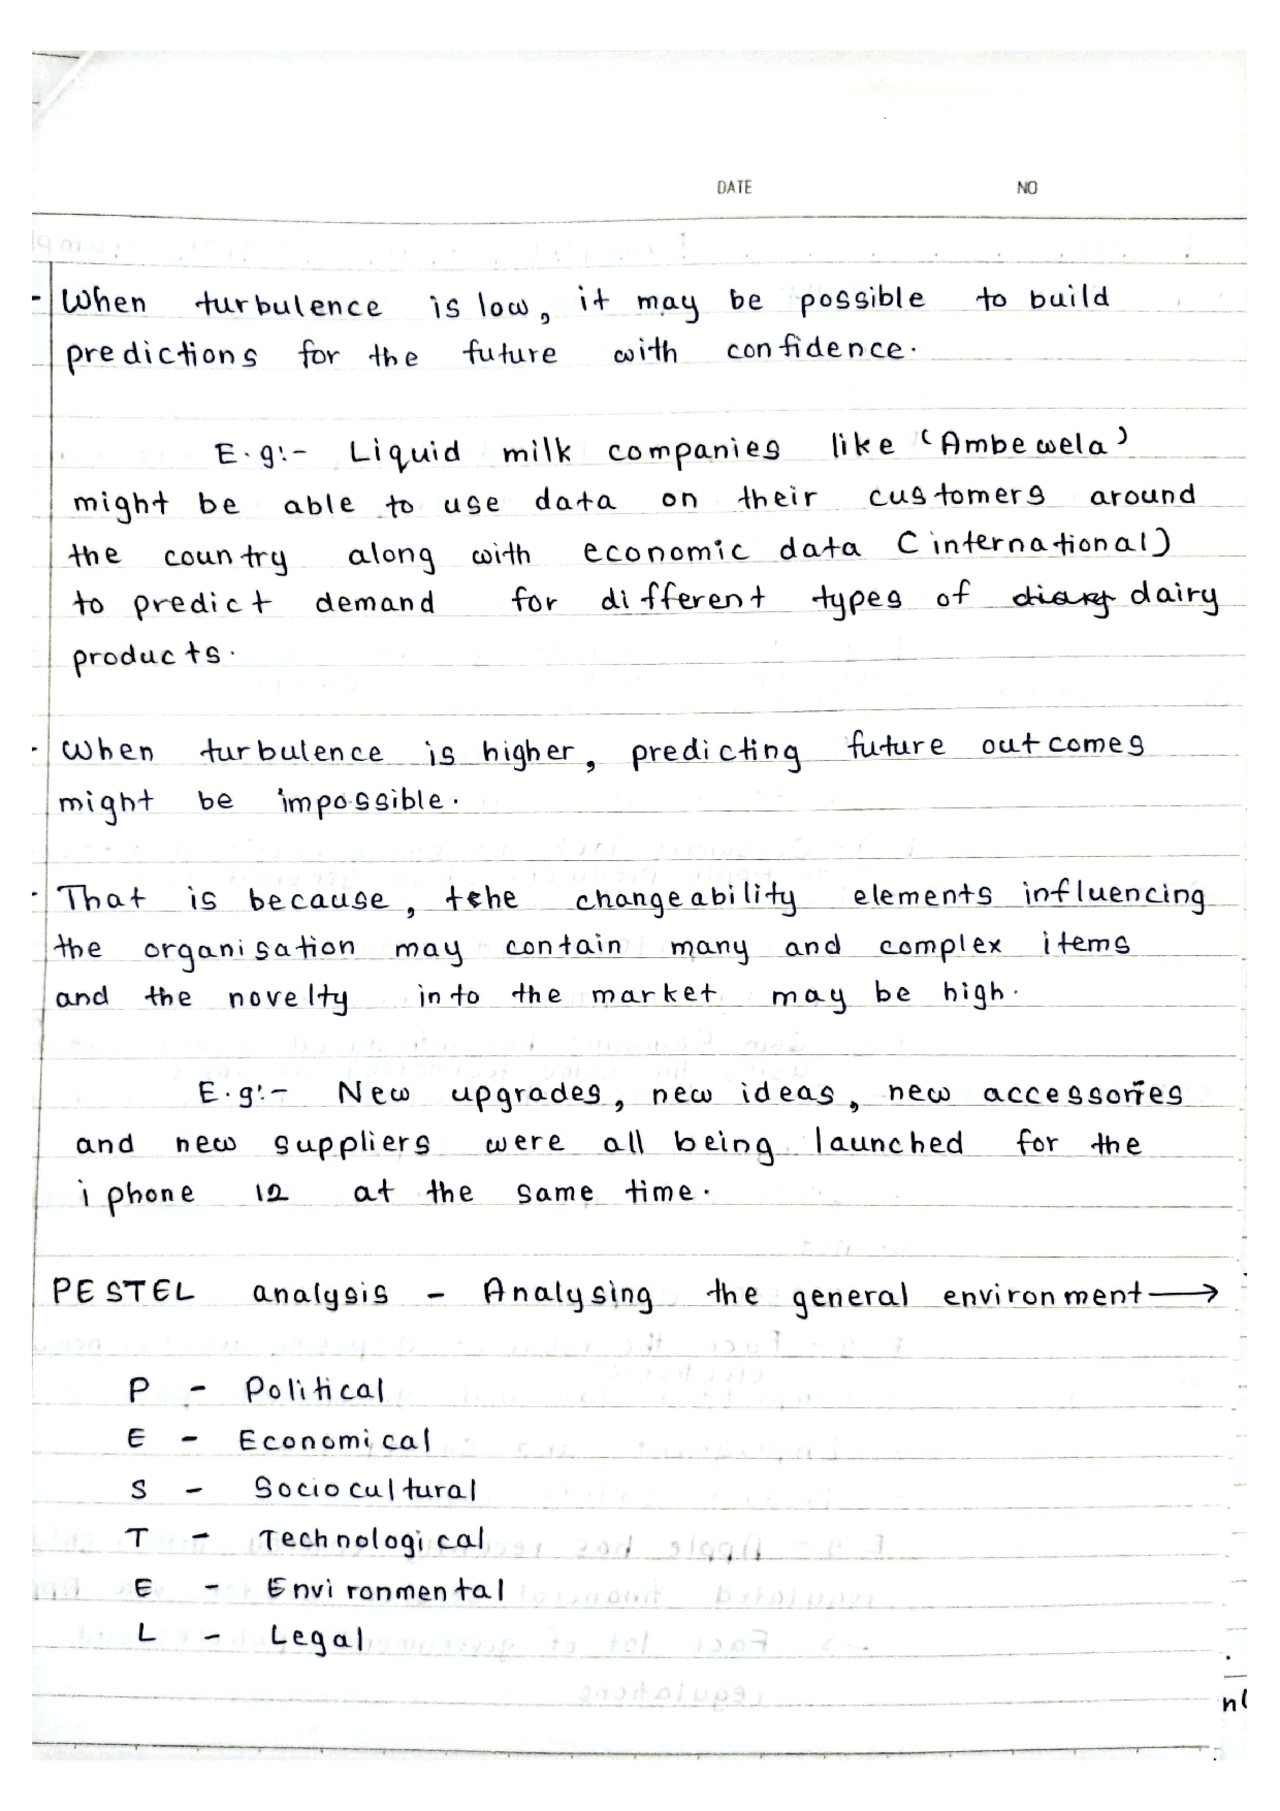 DATE NO
- When turbulence is low, it may be possible to build
predictions for the future with confidence.
E.g:- Liquid milk companies like 'Ambewela'
might be able to use data on their customers around
the country along with economic data (international)
to predict demand for different types of diary dairy
products.
- When turbulence is higher, predicting future outcomes
might be impossible.
- That is because, tehe changeability elements influencing
the organisation may contain many and complex items
and the novelty into the market may be high.
E.g:- New upgrades, new ideas, new accessories
and new suppliers were all being launched for the
iphone 12 at the same time.
PESTEL analysis - Analysing the general environment →
P - Political
E - Economical
S - Sociocultural
T - Technological
E - Environmental
L - Legal